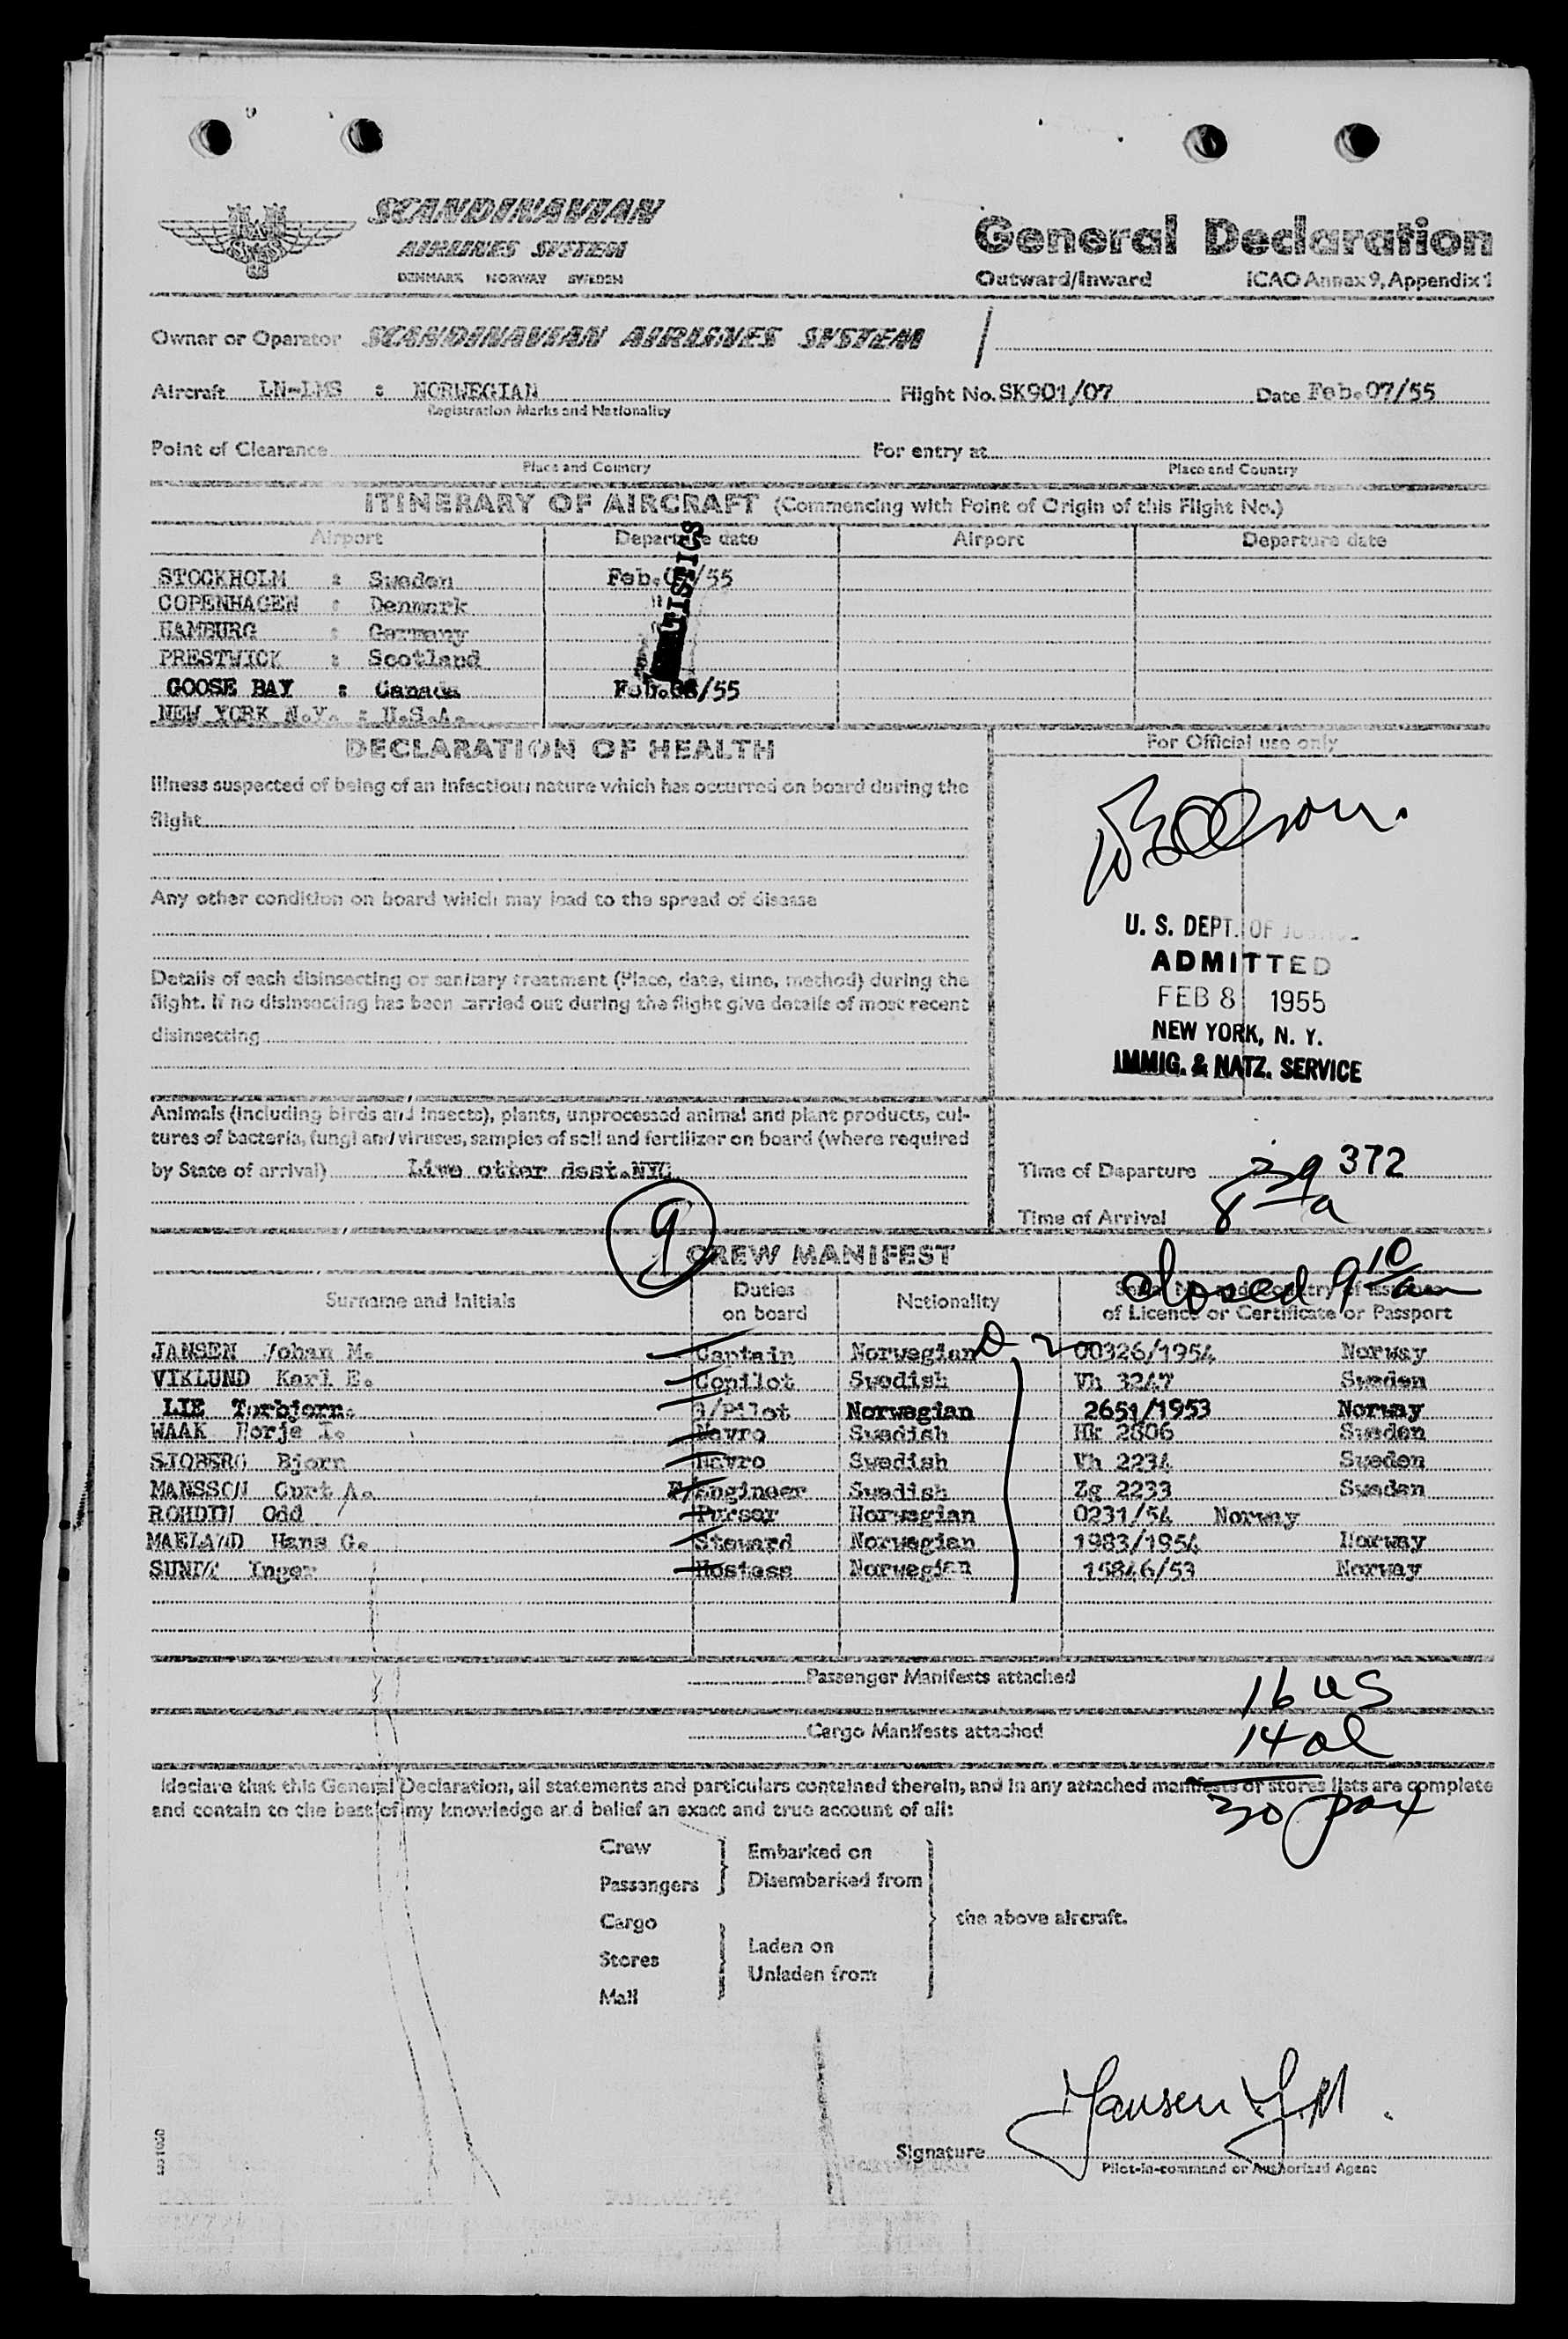 SCANDINAVIAN
AIRLINES SYSTEM
DENMARK NORWAY SWEDEN
General Declaration
Outward/Inward ICAO Annex 9, Appendix 1
Owner or Operator SCANDINAVIAN AIRLINES SYSTEM
Aircraft LN-LMS : NORWEGIAN Flight No. SK901/07 Date Feb.07/55
Registration Marks and Nationality
Point of Clearance For entry at
Place and Country Place and Country
ITINERARY OF AIRCRAFT (Commencing with Point of Origin of this Flight No.)
Airport Departure date Airport Departure date
STOCKHOLM : Sweden Feb. /55
COPENHAGEN : Denmark "
HAMBURG : Germany "
PRESTWICK : Scotland
GOOSE BAY : Canada Feb. /55
NEW YORK N.Y. : U.S.A.
DECLARATION OF HEALTH
For Official use only
Illness suspected of being of an infectious nature which has occurred on board during the
flight
Any other condition on board which may lead to the spread of disease
U. S. DEPT. OF JUSTICE
ADMITTED
FEB 8 1955
NEW YORK, N. Y.
IMMIG. & NATZ. SERVICE
Details of each disinsecting or sanitary treatment (Place, date, time, method) during the
flight. If no disinsecting has been carried out during the flight give details of most recent
disinsecting
Animals (including birds and insects), plants, unprocessed animal and plant products, cul-
tures of bacteria, fungi and viruses, samples of soil and fertilizer on board (where required
by State of arrival) Live otter dest.NYC
Time of Departure 372
Time of Arrival 8 39 a
9
CREW MANIFEST
closed 9 10 am
Surname and Initials Duties on board Nationality of Licence or Certificate or Passport
JANSEN Johan M. Captain Norwegian 00326/1954 Norway
VIKLUND Karl E. Copilot Swedish Vh 3247 Sweden
LIE Torbjorn. /Pilot Norwegian 2651/1953 Norway
WAAK Navro Swedish Hk 2806 Sweden
SJOBERG Bjorn Navro Swedish Vh 2234 Sweden
MANSSON Curt A. F/Engineer Swedish Zg 2233 Sweden
ROHDIN Odd Purser Norwegian 0231/54 Norway
MAELAND Hans G. Steward Norwegian 1983/1954 Norway
Inger Hostess Norwegian 15846/53 Norway
Passenger Manifests attached
16 US
Cargo Manifests attached
14 al
30 pax
I declare that this General Declaration, all statements and particulars contained therein, and in any attached manifests or stores lists are complete
and contain to the best of my knowledge and belief an exact and true account of all:
Crew
Passengers
Embarked on
Disembarked from
Cargo
Stores
Mail
Laden on
Unladen from
the above aircraft.
Jansen J.M.
Signature
Pilot-in-command or Authorized Agent